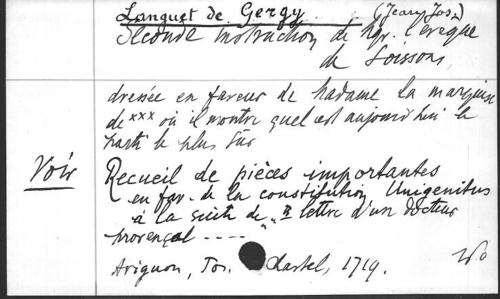 Languet de Gergy (Jean, Jos.)
Seconde instruction de Mgr. l'évêque
de Soissons,
dressée en faveur de Madame la marquise
de *** où il montre quel est aujourd'hui le
parti le plus sûr
Voir Recueil de pièces importantes
en fav. de la constitution Unigenitus
à la suite de "IIe lettre d'un docteur
provençal ----
Avignon, Jos. Chastel, 1719.